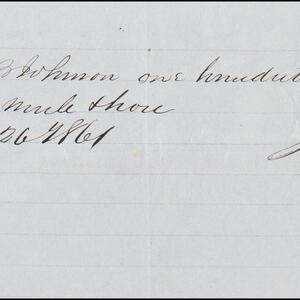 B Johnson one hundred
mule & horse
26 1861